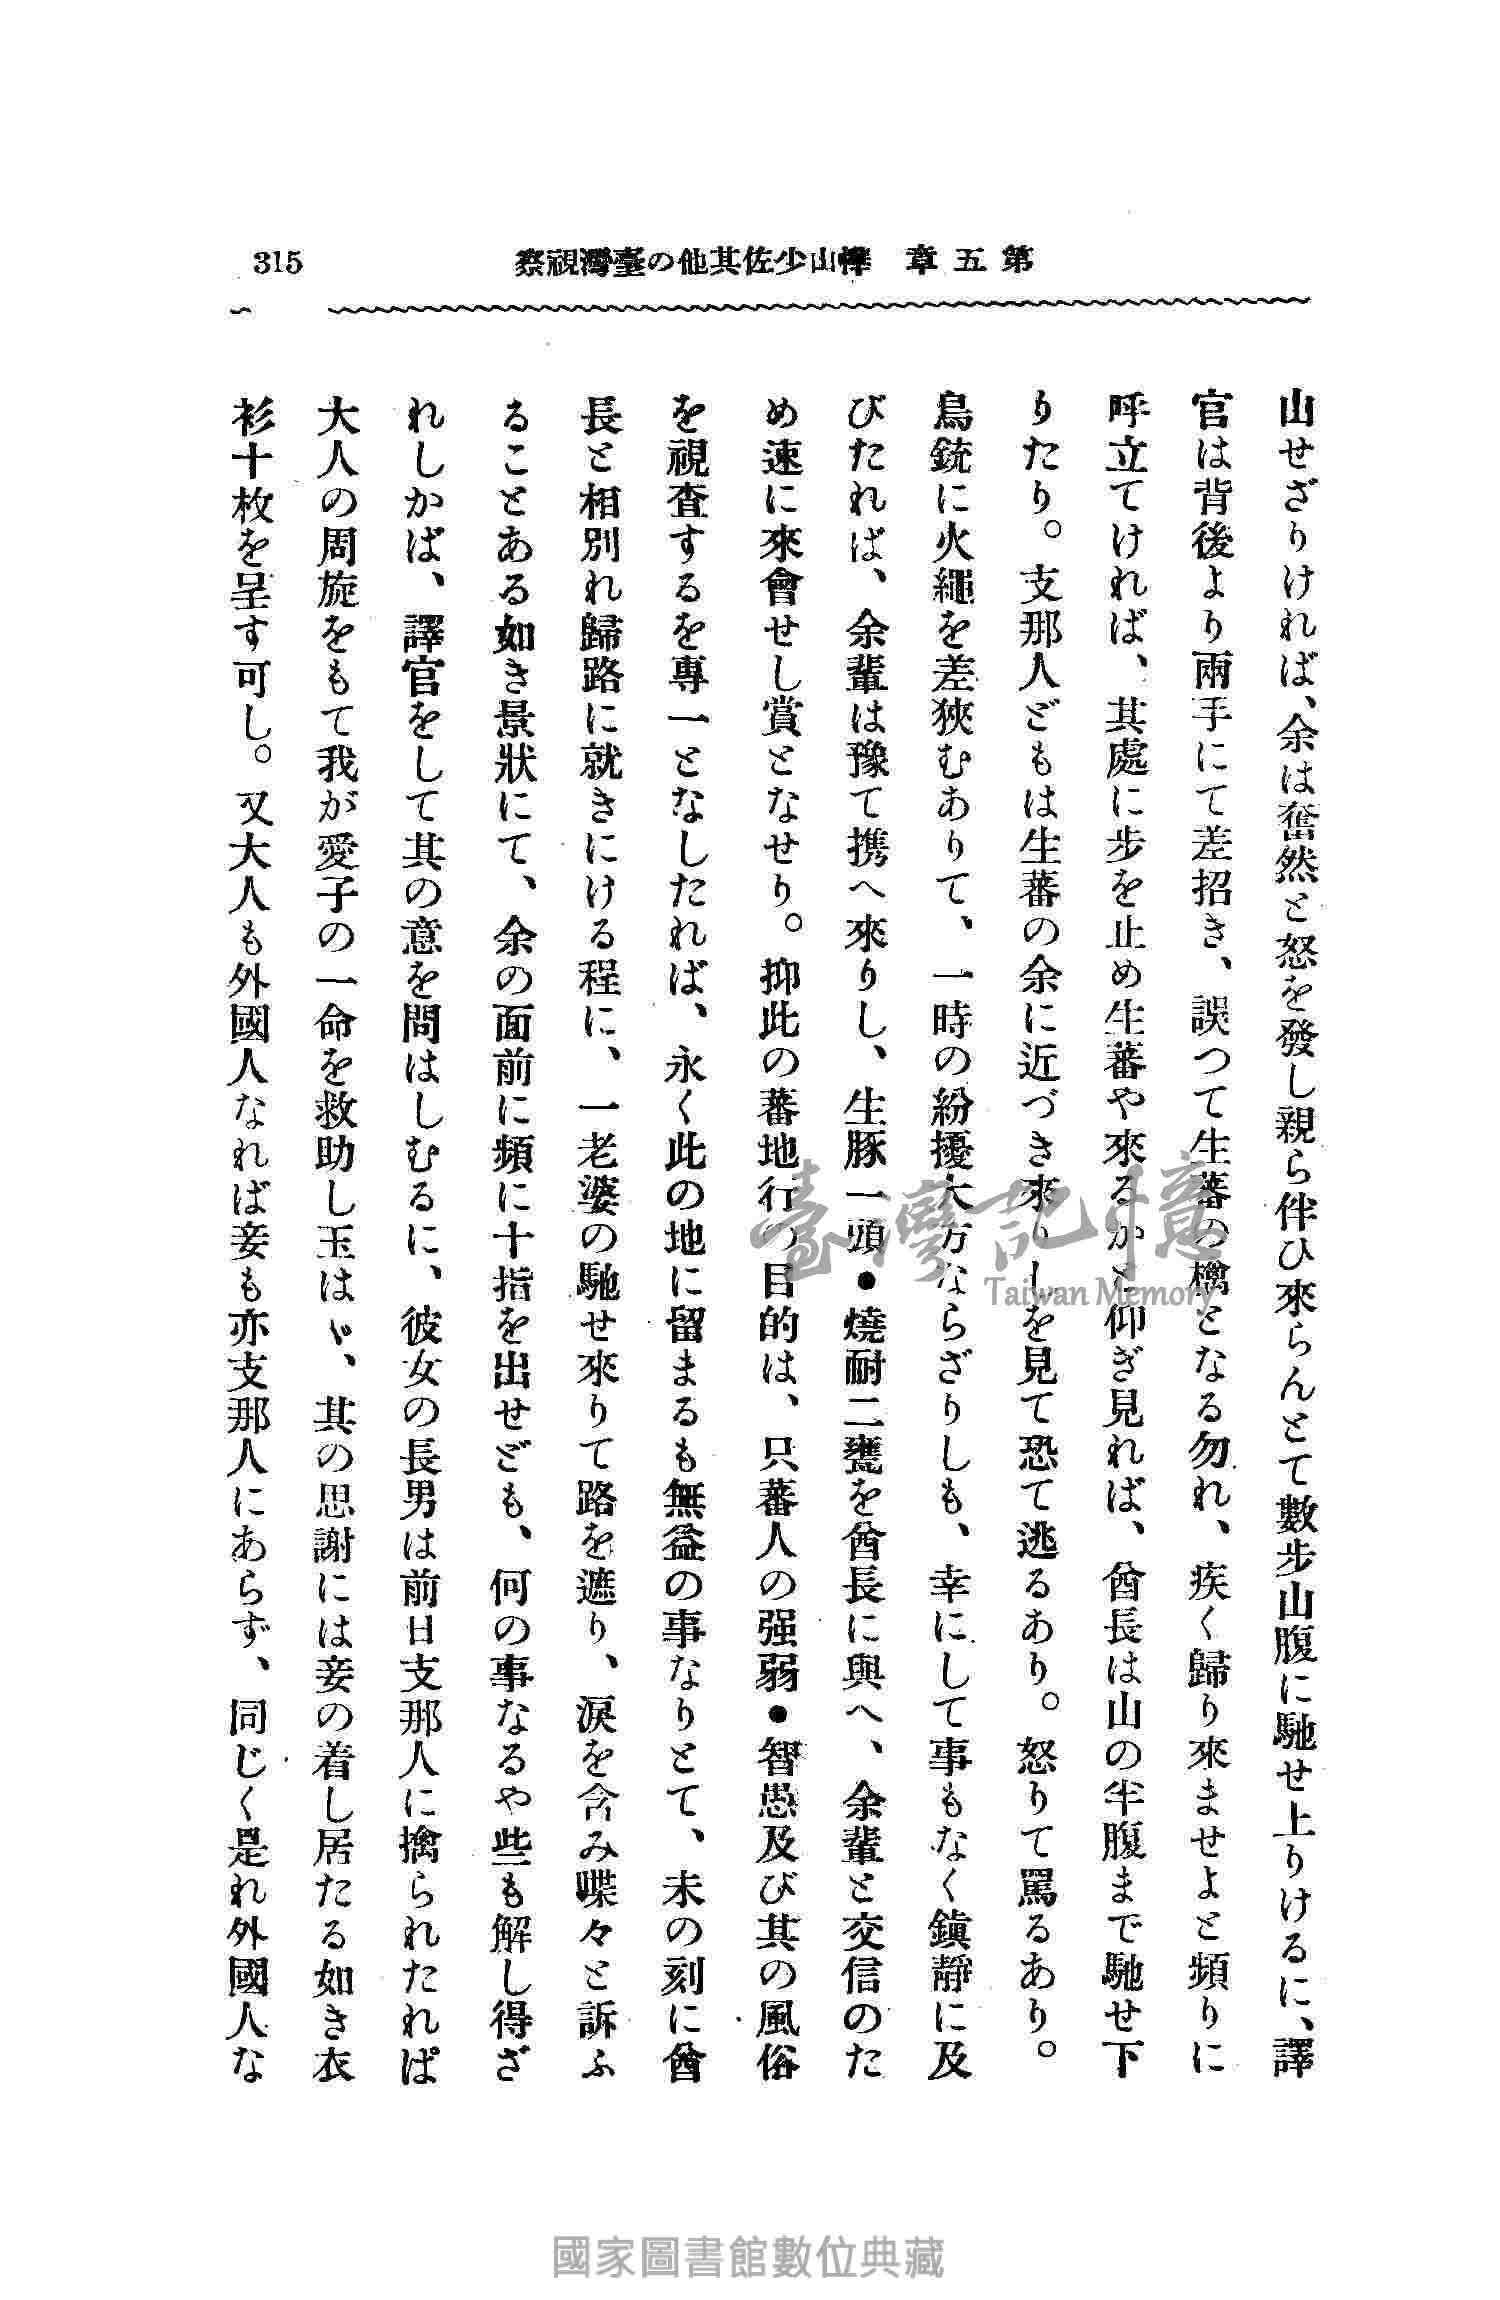 第五章 樺山少佐其他の臺灣視察
315
山せざりければ、余は奮然と怒を發し親ら伴ひ來らんとて數步山腹に馳せ上りけるに、譯
官は背後より兩手にて差招き、誤つて生蕃の檎となる勿れ、疾く歸り來ませよと頻りに
呼立てければ、其處に步を止め生蕃や來るかと仰ぎ見れば、酋長は山の半腹まで馳せ下
りたり。支那人どもは生蕃の余に近づき來りしを見て恐て逃るあり。怒りて罵るあり。
鳥銃に火繩を差狹むありて、一時の紛擾大方ならざりしも、幸にして事もなく鎭靜に及
びたれば、余輩は豫て携へ來りし、生豚一頭●燒耐二甕を酋長に與へ、余輩と交信のた
め速に來會せし賞となせり。抑此の蕃地行の目的は、只蕃人の强弱●智愚及び其の風俗
を視査するを專一となしたれば、永く此の地に留まるも無益の事なりとて、未の刻に酋
長と相別れ歸路に就きにける程に、一老婆の馳せ來りて路を遮り、淚を含み喋々と訴ふ
ることある如き景狀にて、余の面前に頻に十指を出せども、何の事なるや些も解し得ざ
れしかば、譯官をして其の意を問はしむるに、彼女の長男は前日支那人に擒られたれば
大人の周旋をもて我が愛子の一命を救助し玉はゞ、其の思謝には妾の着し居たる如き衣
衫十枚を呈す可し。又大人も外國人なれば妾も亦支那人にあらず、同じく是れ外國人な
臺灣記憶
Taiwan Memory
國家圖書館數位典藏